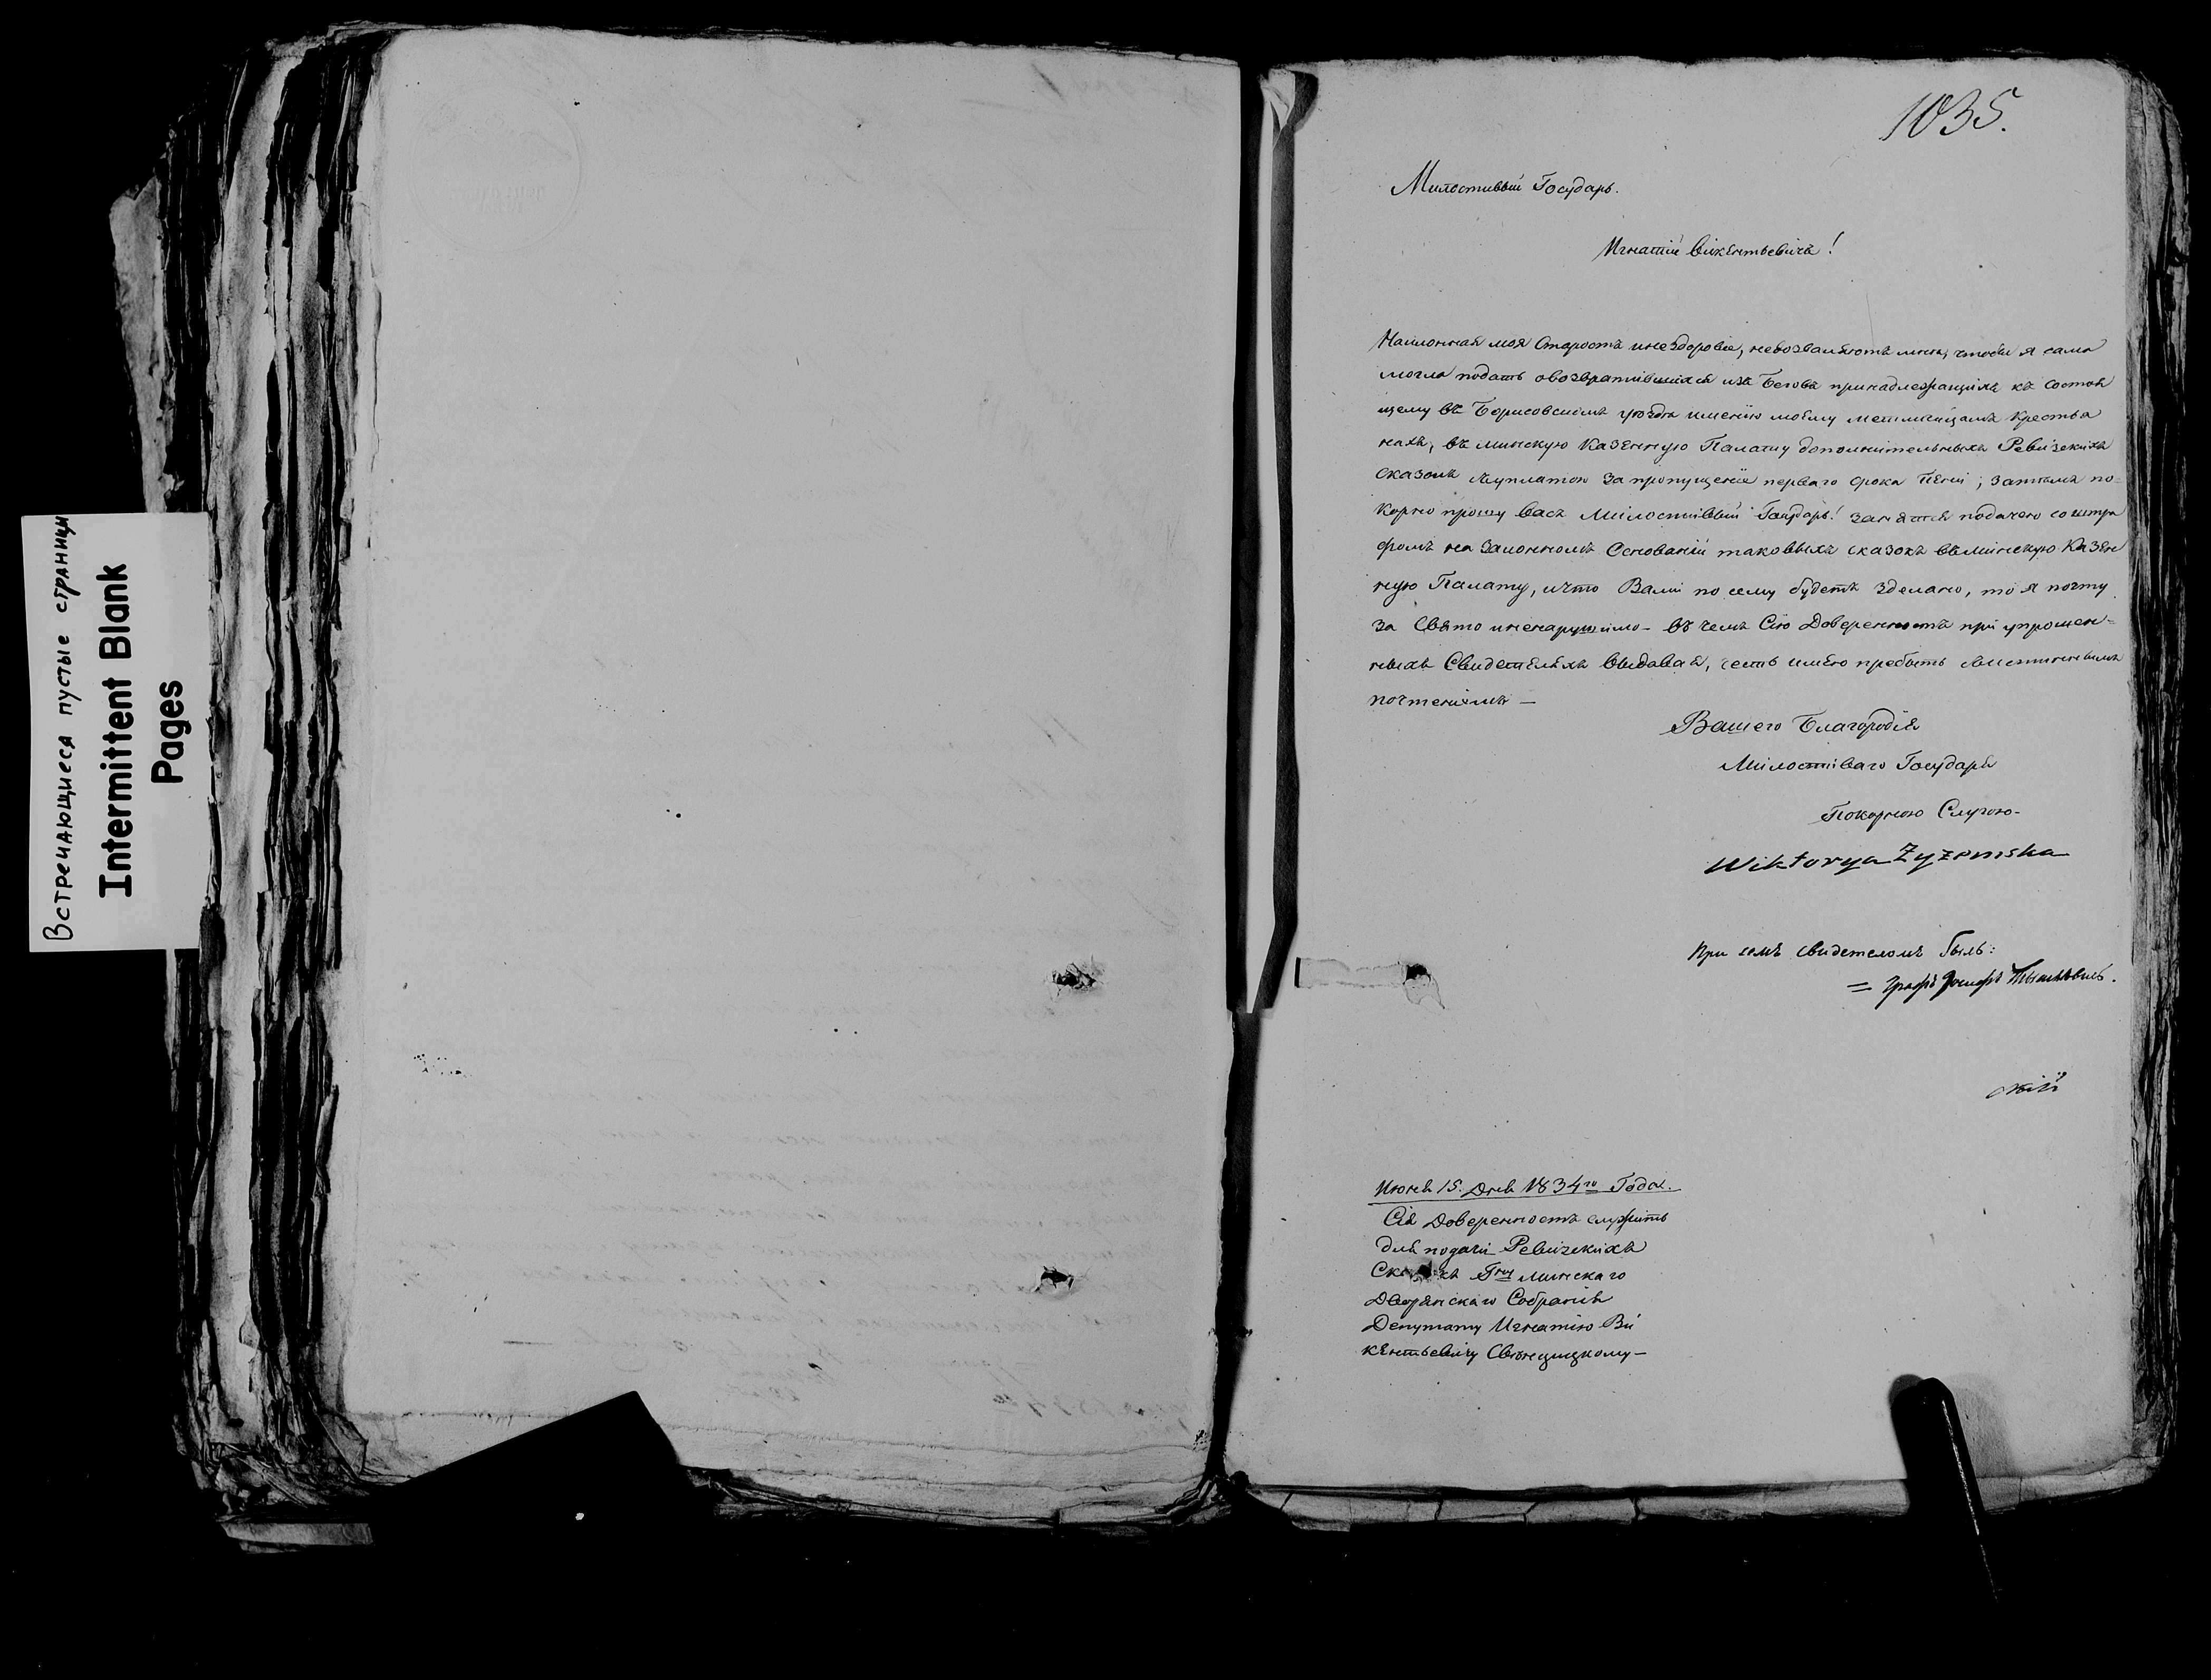 Встречающиеся пустые страницы
Intermittent Blank
Pages
1035.
Милостивый Государь.
Игнатій Викентьевичъ!
моя Старость инездоровіе, невозваляютъ мнѣ, чтобы я сама
могла подать овозвратившихся изъ Беговъ принадлежащихъ къ состоя
щему въ Борисовскомъ уѣзде имению моему Крестья
нахъ, въ минскую Казенную Палату дополнительныхъ Ревизскихъ
сказокъ суплатою за пропущеніе перваго срока Пени; затемъ по=
корно прошу Васъ Милостивый Государь! занятся подачею со штра
фомъ на законномъ Основаніи таковыхъ сказокъ въминскую Казен
ную Палату, ичто Вами по сему будетъ зделано, то я почту
за Свято иненарушимо - въ чемъ Сію Доверенность при упрошен=
ныхъ Свидетеляхъ выдавая, честь имею пребыть систиннымъ
почтеніемъ —
Вашего Благородія
Милостиваго Государя
Покорною Слугою -
Wiktorya Zyzemska
При семъ свидетеломъ Былъ:
= Графъ Іосифъ
Июня 15. Дня 1834го Года.
Сія Доверенность служитъ
для подачи Ревизскихъ
Гну минскаго
Дворянскаго Собранія
Депутату Игнатію Ви
кентьевичу